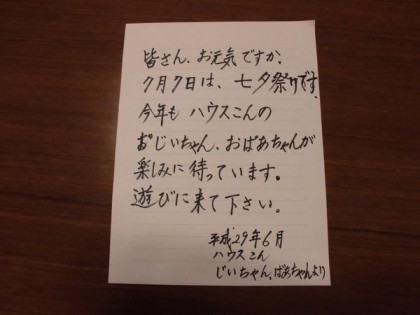 皆さん、お元気ですか。
7月7日は、七夕祭りです。
今年も ハウスこんの
おじいちゃん、おばあちゃんが
楽しみに待っています。
遊びに来て下さい。
平成29年6月
ハウスこん
じいちゃん、ばあちゃんより